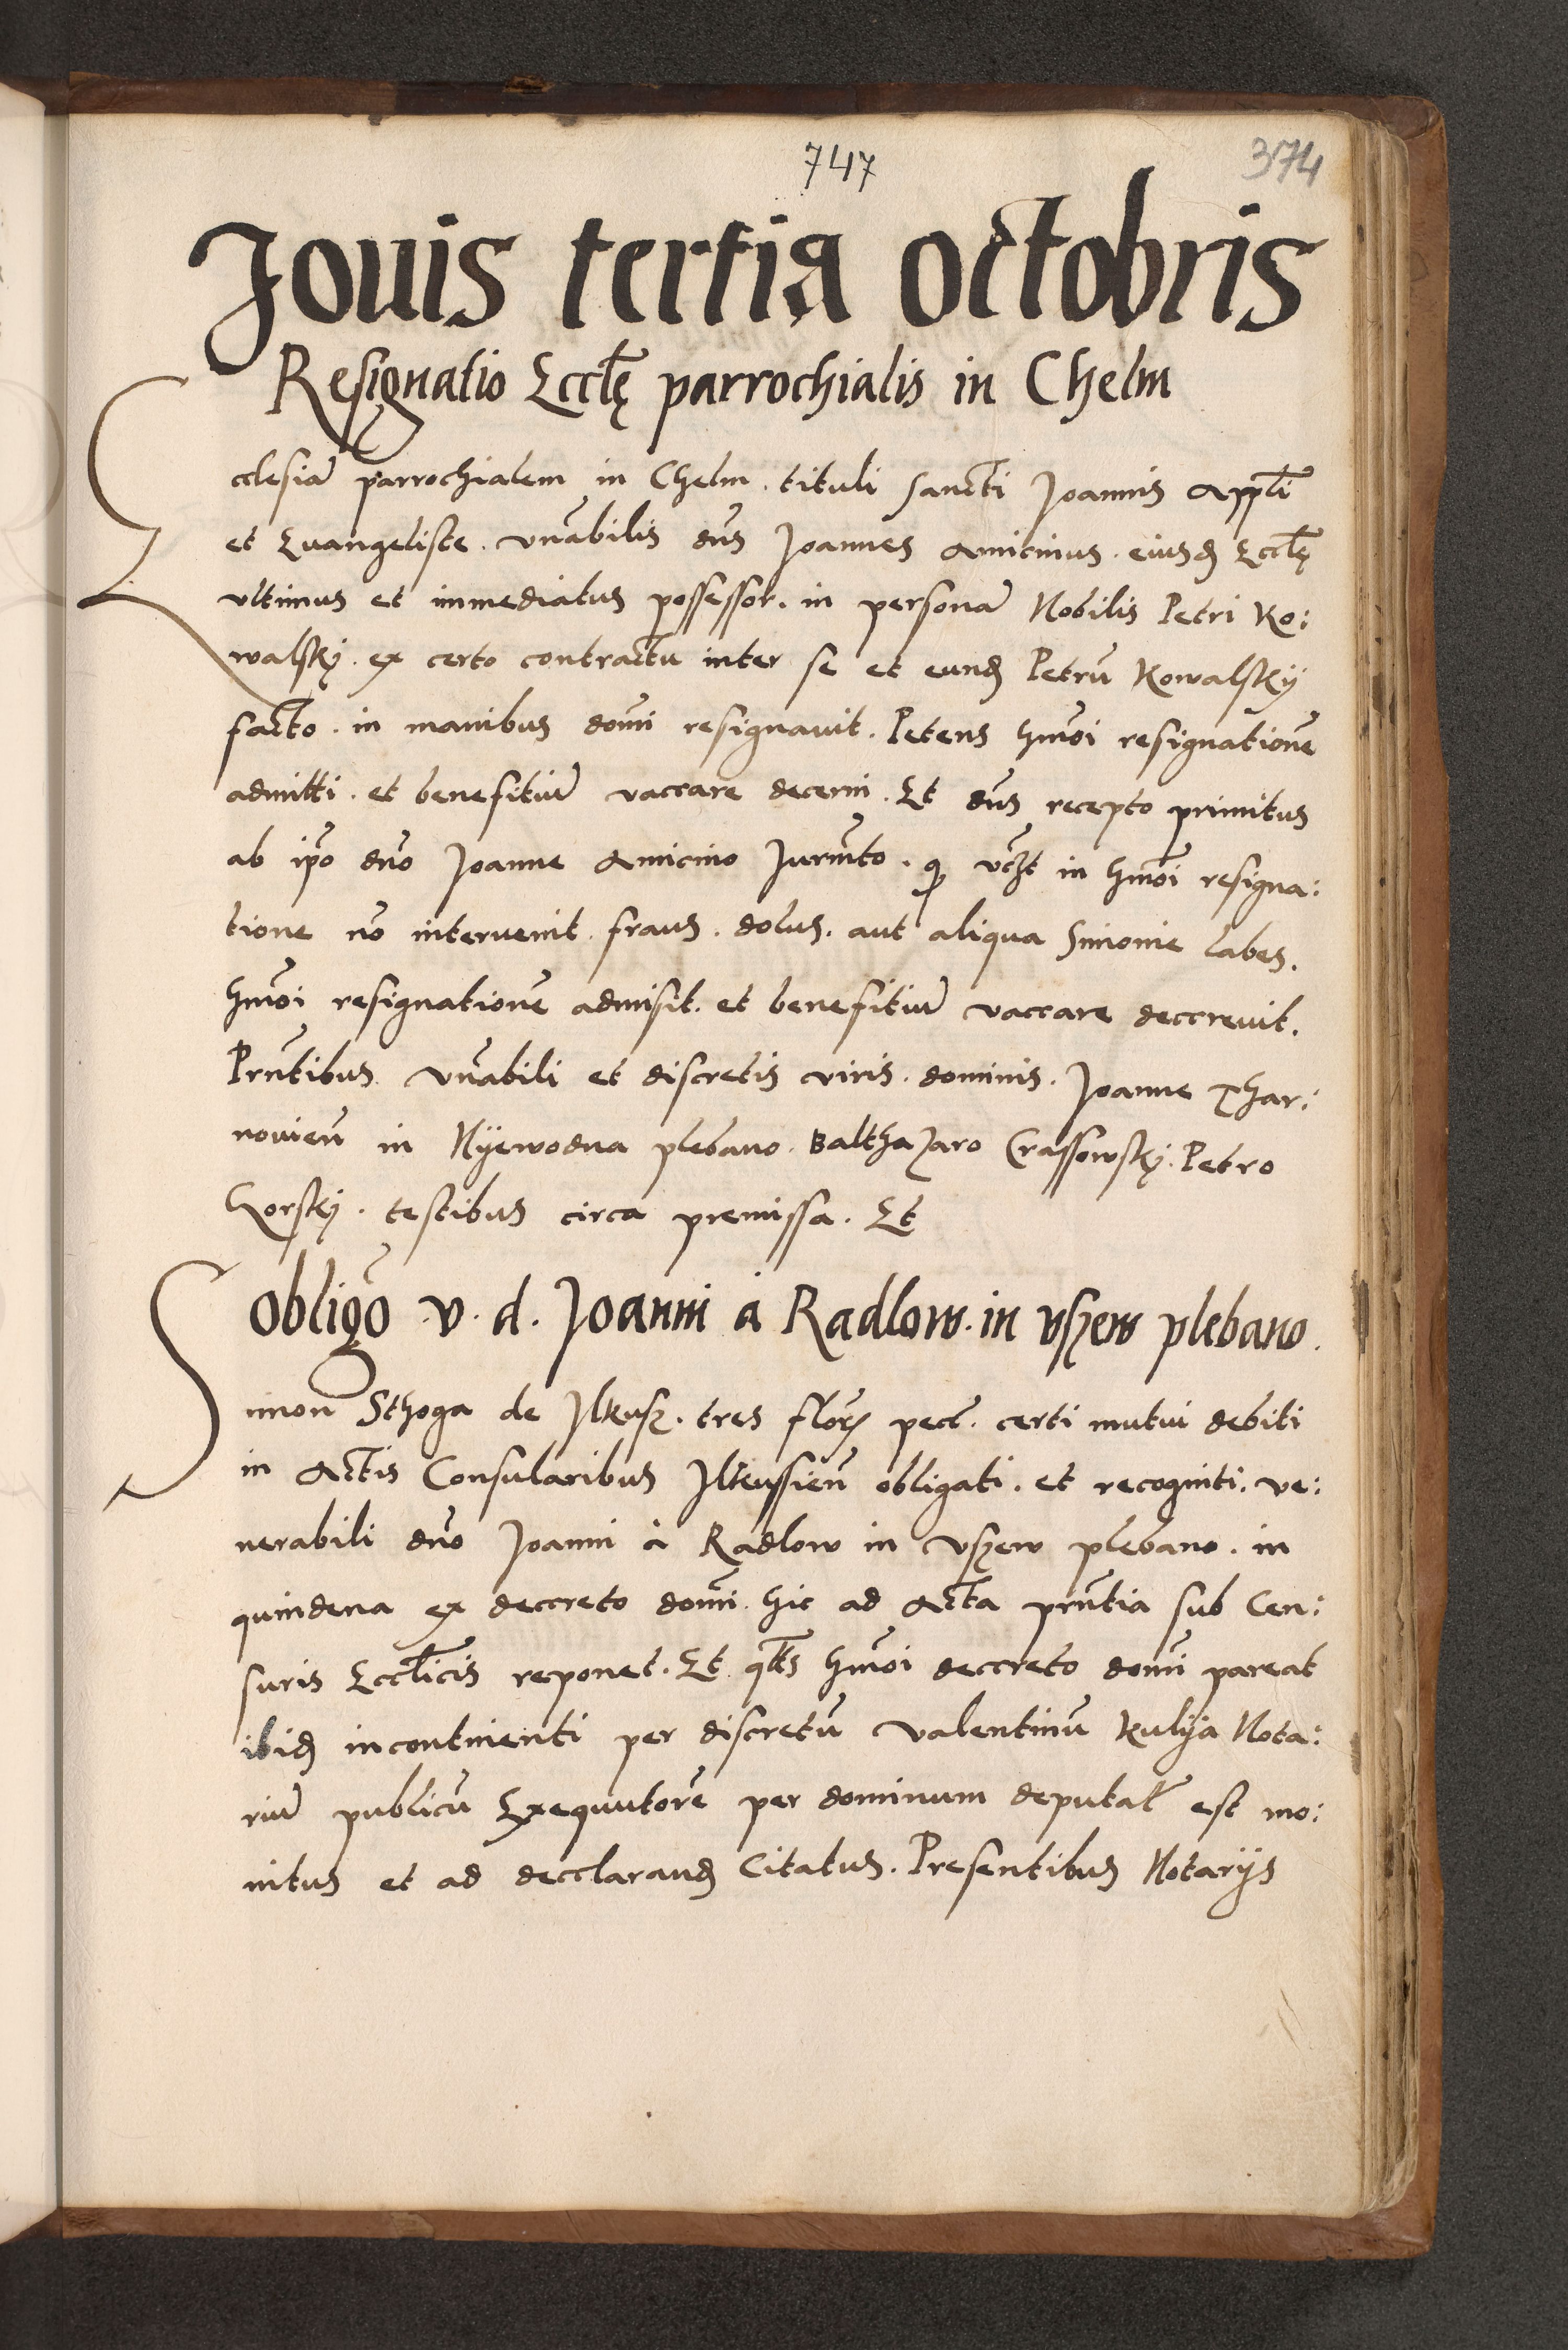 747
374
Jouis tertia octobris
Resignatio Eccłę parrochialis in Chelm
Ecclesiā parrochialem in Chelm. tituli sancti Joannis Appłi
et Euangeliste. vn̄abilis dn̄s Joannes Amicinus. eiusđ Eccłę
vltimus et immediatus possessor. in personā Nobilis Petri Ko:
walsky. ex certo contractu inter se et eunđ Petrū Kowalsky
facto. in manibus domī resignauit. Petens hm̄oi resignationē
admitti. et benefitiū vaccare decerni. Et dn̄s recepto primitus
ab ip̄o dn̄o Joanne Amicino Jurm̄to. in hm̄oi resigna:
tione nō interuenit. fraus. dolus. aut aliqua Simonie labes.
hm̄oi resignationē admisit. et benefitiū vaccare deccreuit.
Prn̄tibus vn̄abili et discretis viris. dominis. Joanne Thar:
nouień in Nyewodna plebano. Balthazaro Crassowsky. Petro
Gorsky. testibus circa premissa. Et
obligō v. d. Joanni à Radlow. in vszew plebano.
Simon Sthoga de Ilkusz. tres flor pecć. certi mutui debiti
in Actis Consularibus Ilkussień obligati. et recogniti. ve:
nerabili dn̄o Joanni à Radlow in vszew plebano. in
quindena ex deccreto domī. hic ad Acta prn̄tia sub Cen:
suris Eccłicis reponet. Et qłs hm̄oi deccreto domī pareat
ibiđ incontinenti per discretū Valentinū Kulya Nota:
riū publicū Exequutorē per dominum deputat̄ est mo:
nitus et ad decclaranđ Citatus. Presentibus Notarijs